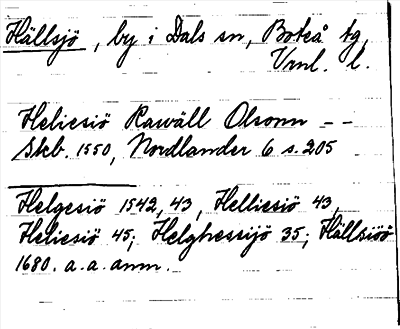 Hällsjö, by i Dals sn, Boteå tg,
Vml. l.
Heliesiö Rawäll Olsonn --
Skb. 1550, Nordlander 6 s. 205
Helgesiö 1542, 43, Helliesiö 43,
Heliesiö 45; Helghessijö 35; Hällsiöö
1680. a. a. anm.